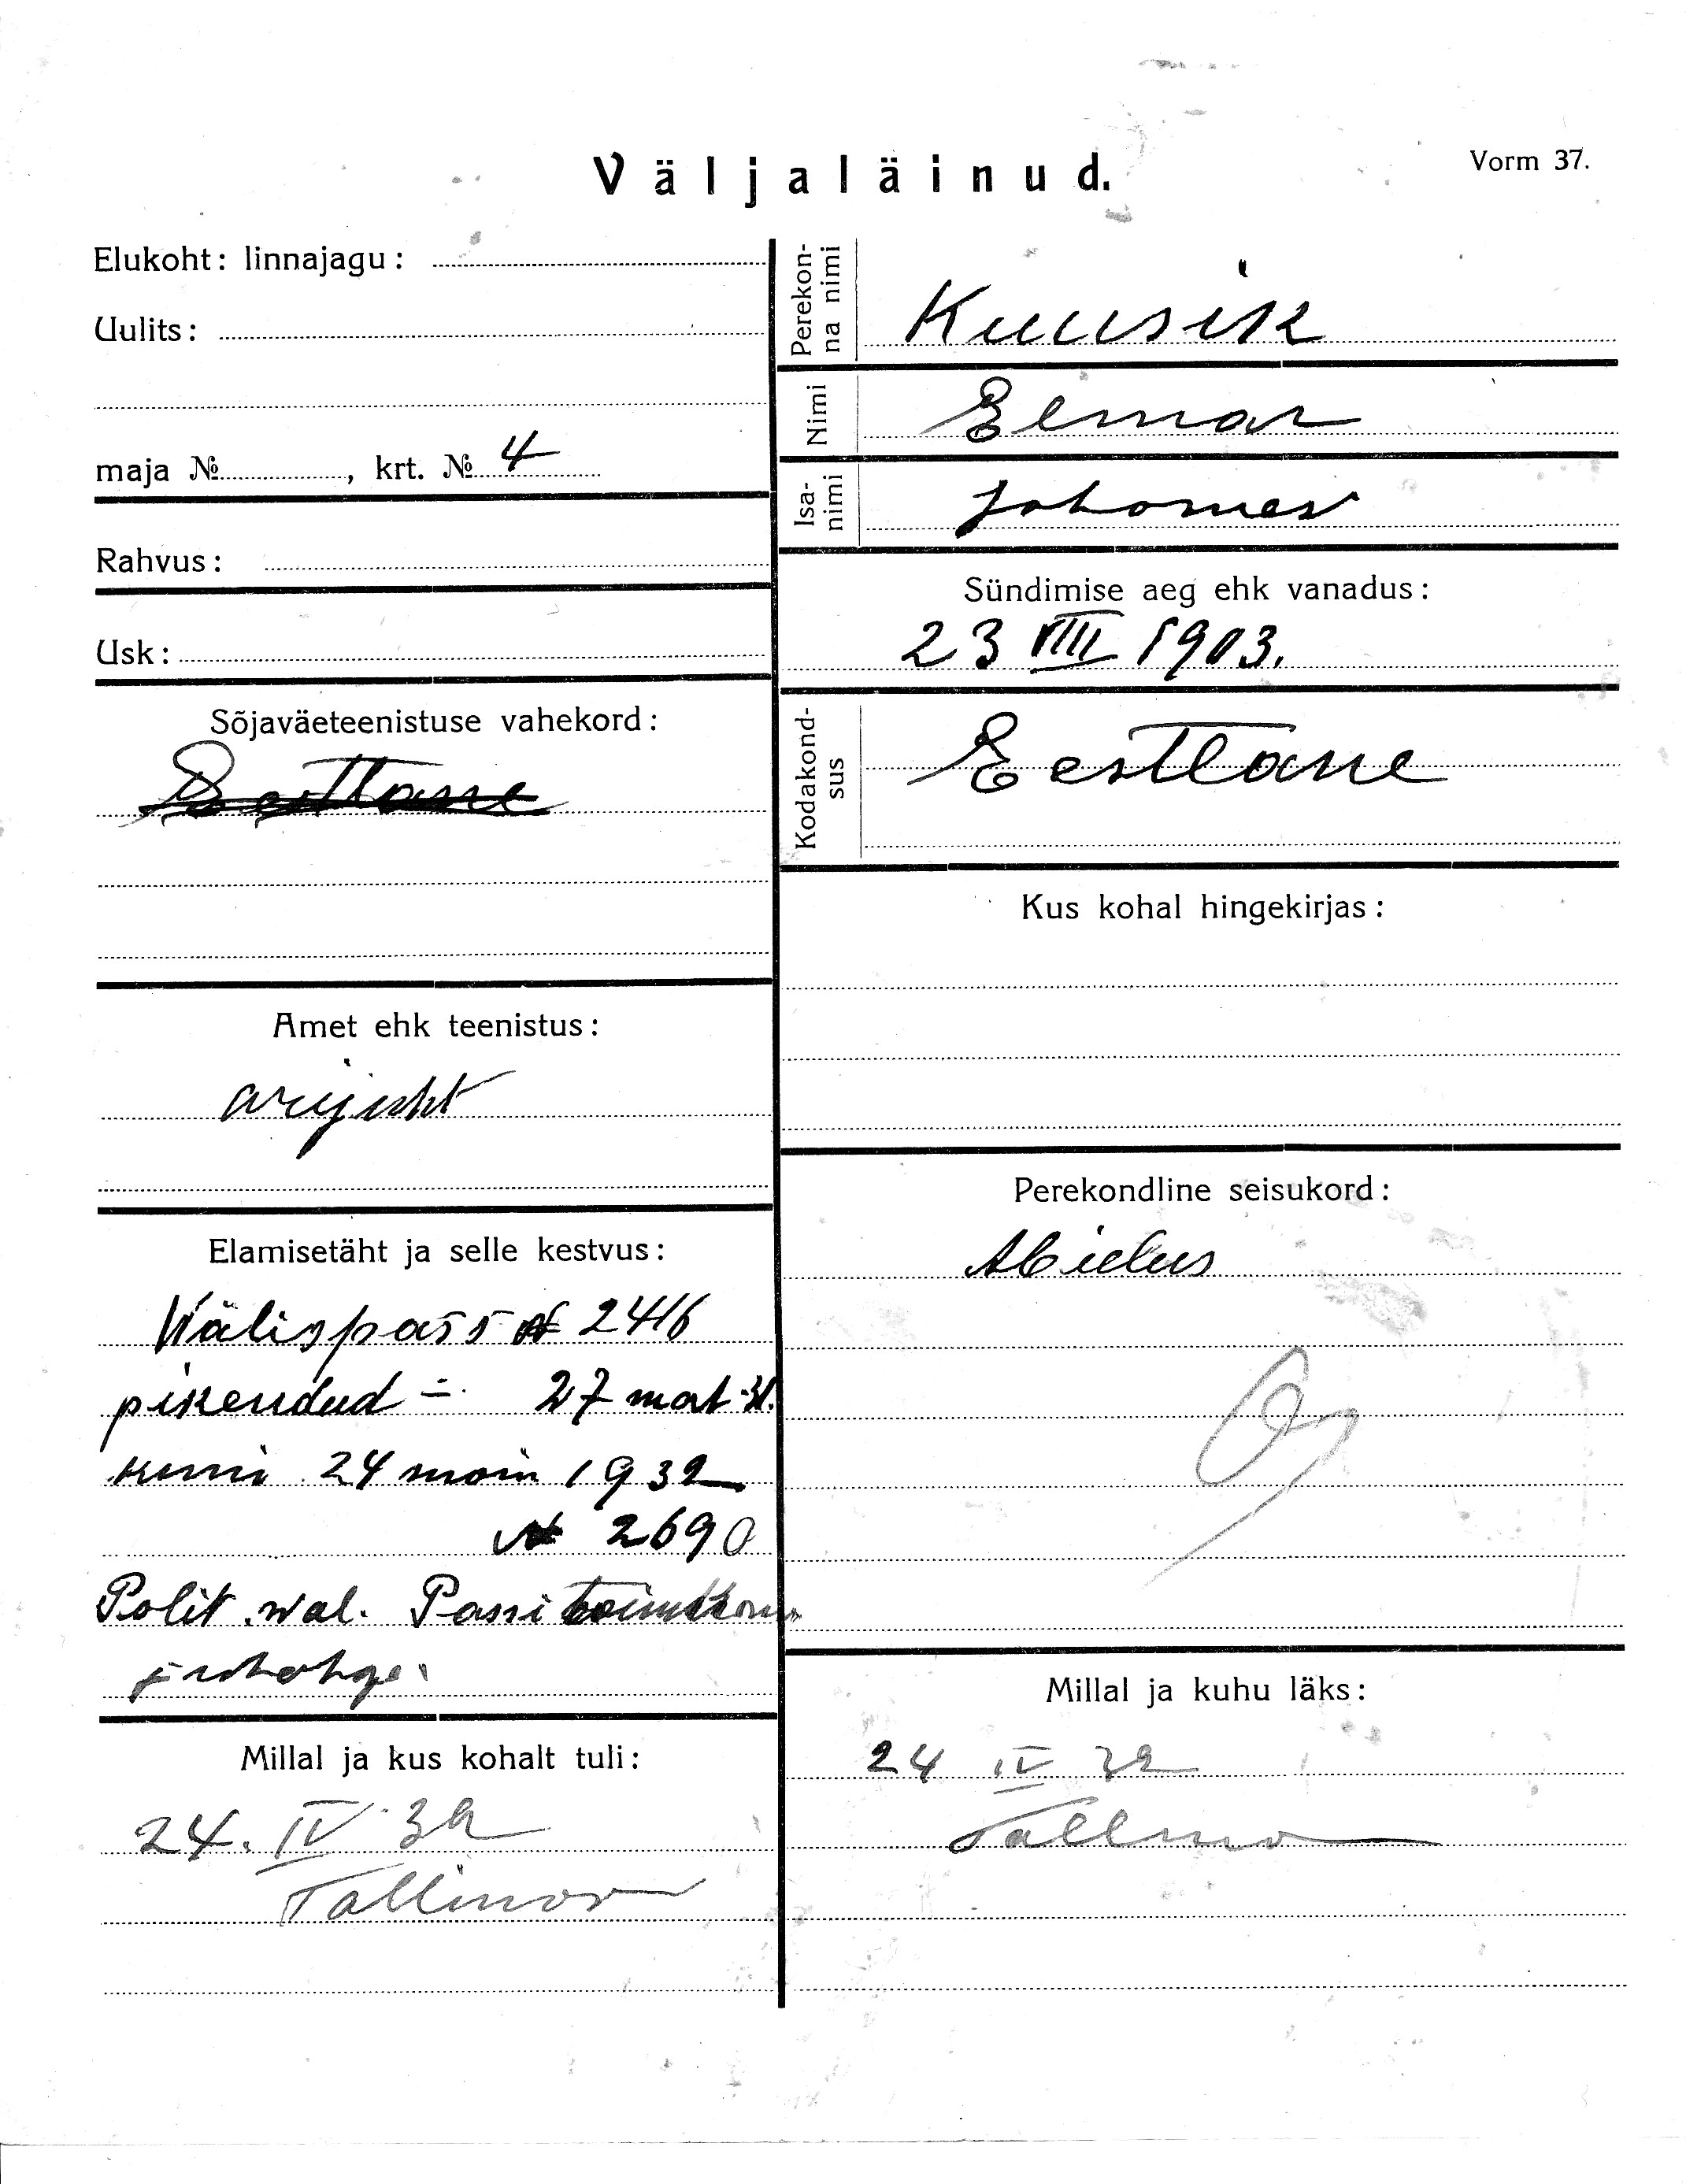 Väljaläinud.
Vorm 37.
Elukoht: linnajagu:
Uulits:
maja №, krt. № 4
Rahvus:
Usk:
Sõjaväeteenistuse vahekord:
Eestlane
Amet ehk teenistus:
arijuht
Elamisetäht ja selle kestvus:
Wälispass № 2416
pikendud - 27 mart 31.
kunni 24 main 1932
№ 2690
Polit. wal. Passi
Millal ja kus kohalt tuli:
24. IV 32
Tallinnas
Perekonna nimi
Kuusik
Nimi
Elmar
Isanimi
Johannes
Sündimise aeg ehk vanadus:
23 VIII 1903.
Kodakondsus
Eestlane
Kus kohal hingekirjas:
Perekondline seisukord:
Abielus
Millal ja kuhu läks:
24 IV 32
Tallinna